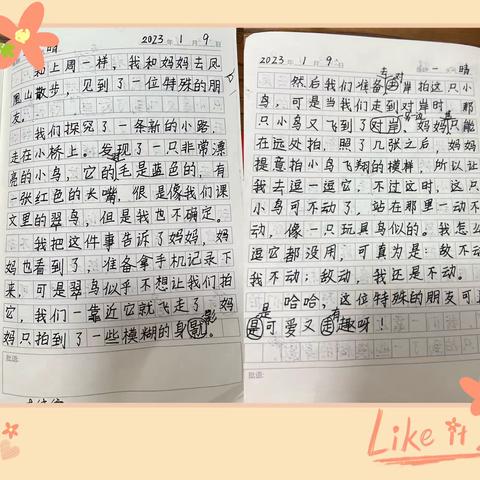 2023年1月9日 晴
和上周一样，我和妈妈去凤
里山散步，见到了一位特殊的朋
友。
我们探究了一条新的小路，
走在小桥上。发现了一只非常漂
亮的小鸟，它的毛是蓝色的，有
一张红色的长嘴，很是像我们课
文里的翠鸟，但是我也不确定。
我把这件事告诉了妈妈，妈
妈也看到了，准备拿手机记录下
来，可是翠鸟似乎不想让我们拍
它，我们一靠近它就飞走了，妈
妈只拍到了一些模糊的身影。
影
批语：
2023年1月9日 晴
去对
然后我们准备走岸拍这只小
鸟，可是当我们走到对岸时，那
只小鸟又飞到了对岸，妈妈只能
在远处拍，照了几张之后，妈妈
提意拍小鸟飞翔的模样，所以让
我去逗一逗它，不过这时，这只
小鸟可不动了，站在那里一动不
动，像一只玩具鸟似的。我怎么
逗它都没用，可真为是：敌不动
我不动；敌动，我还是不动。
哈哈，这位特殊的朋友可真
是可爱又走趣呀！
是
有
批语：
Like it